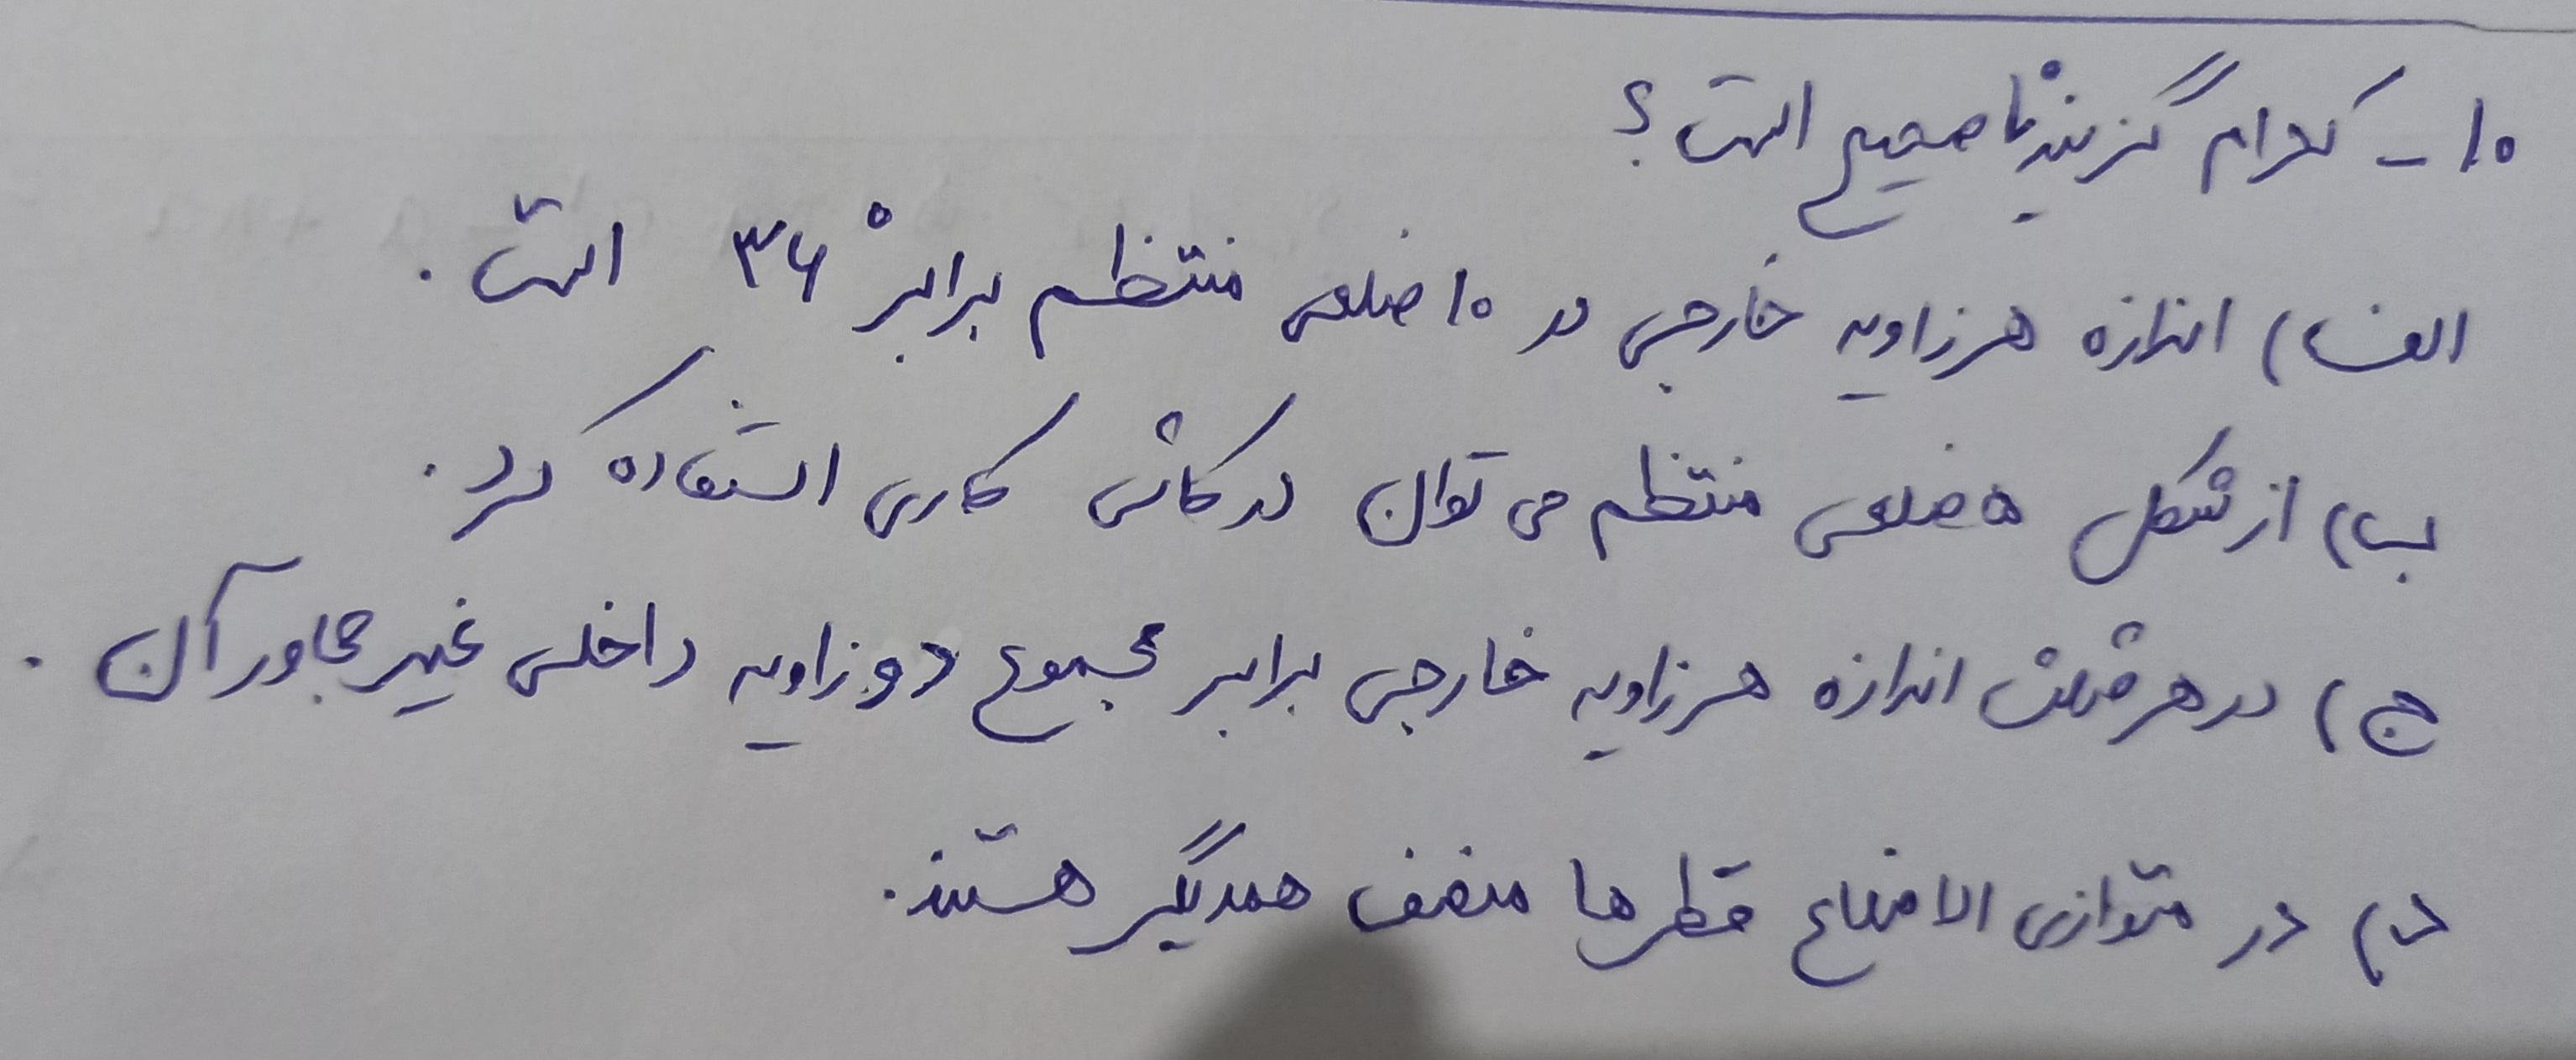 ۱۰ - کدام گزینه ناصحیح است؟
الف) اندازه هر زاویه خارجی در ۱۰ ضلعی منتظم برابر ۳۶° است.
ب) از شکل ۵ ضلعی منتظم می توان در کاشی کاری استفاده کرد.
ج) در هر مثلث اندازه هر زاویه خارجی برابر مجموع دو زاویه داخلی غیر مجاور آن.
د) در متوازی الاضلاع قطرها منصف همدیگر هستند.